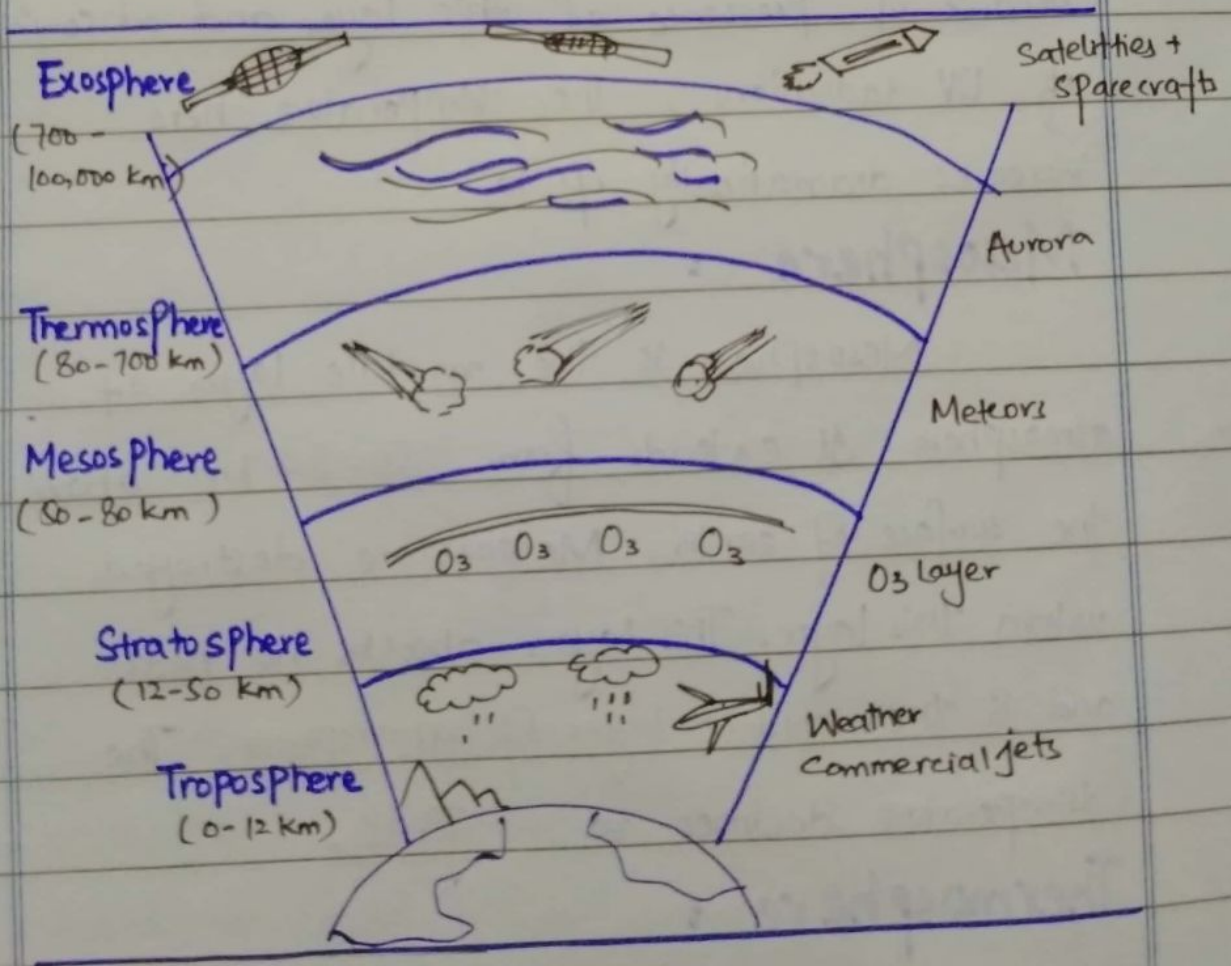 Exosphere
(700 -
100,000 km)
Satelitties +
Sparecrafts
Aurora
Thermosphere
(80-700 km)
Meteors
Mesosphere
(50-80 km)
O3 O3 O3 O3
O3 layer
Stratosphere
(12-50 km)
Weather
Commercial jets
Troposphere
(0-12 km)